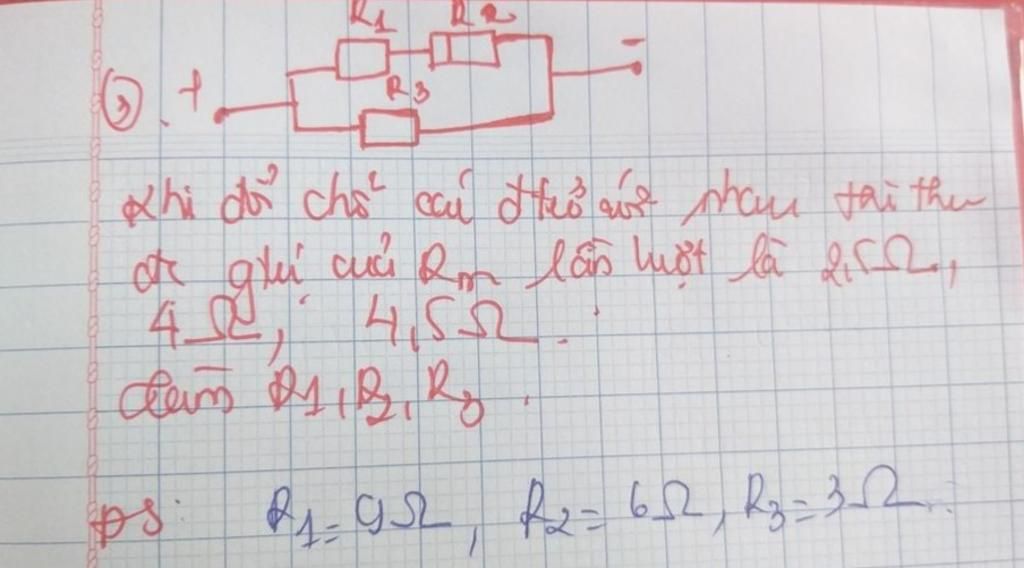 R1 R2
3) + -
R3
Khi đổi chỗ các đtrở với nhau thì thu
đc gtrị của Rm lần lượt là 2,5Ω,
4Ω, 4,5Ω.
Tìm R1, R2, R3.
ĐS: R1=9Ω, R2=6Ω, R3=3Ω.